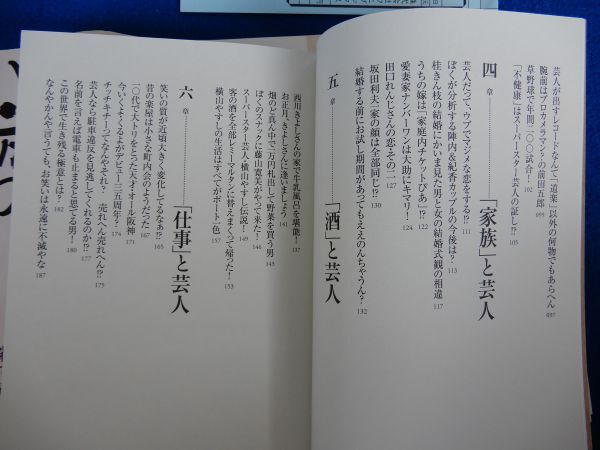 芸人が出すレコードなんて「道楽」以外の何物でもあらへん 097
腕前はプロカメラマン?の前田五郎 099
草野球で年間二〇〇試合!
「不健康」はスーパースター芸人の証し!? 105
四章 「家族」と芸人
芸人だって、ウブでマジメな恋をする!? 111
ぼくが分析する陣内&紀香カップルの今後は? 113
桂きん枝の結婚にかいま見た男と女の結婚式観の相違 117
うちの嫁は「家庭内チケットぴあ」!? 122
愛妻家ナンバーワンは大助にキマリ! 124
田口れんじさんの恋・その二 127
坂田利夫一家の顔は全部同じ!? 130
結婚する前にお試し期間があってもええのんちゃうん? 132
五章 「酒」と芸人
西川きよしさんの家で牛乳風呂を堪能! 137
お正月、きよしさんに逢いましょう 141
畑のど真ん中で一万円札出して野菜を買う男 143
ぼくのスナックに藤山寛美がやって来た! 146
スーパースター芸人・横山やすし伝説! 149
客の酒を全部レミーマルタンに替えまくって帰った! 153
横山やすしの生活はすべてがボート一色 157
六章 「仕事」と芸人
笑いの質が近頃大きく変化してるなぁ!? 165
昔の楽屋は小さな町内会のようだった 167
一〇代で大トリをとった天才・オール阪神 171
今いくよくるよがデビュー三五周年? 174
チッチキチーってなんやそれ? 売れへん売れへん!? 175
芸人なら駐車違反を見逃してくれるのか!? 177
名前を言えば電車も止まると思てる男! 180
この世界で生き残る極意とは? 182
なんやかんや言うても、お笑いは永遠に不滅やな 187